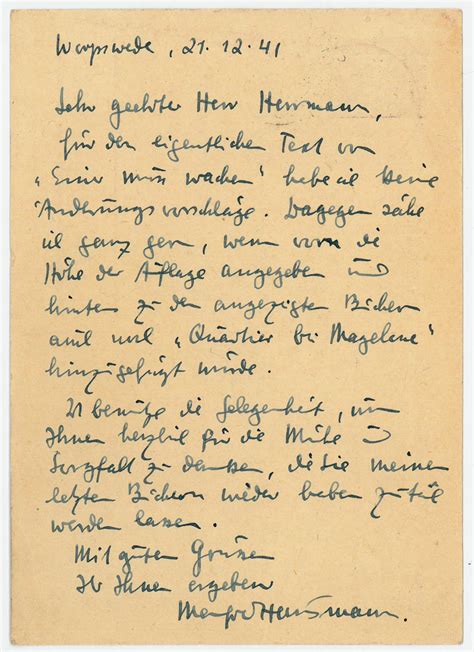 Worpswede, 21.12.41
Sehr geehrter Herr Herrmann,
für den eigentlichen Text von
„Einer muss wachen" habe ich keine
Änderungsvorschläge. Dagegen sähe
ich ganz gern, wenn vorn die
Höhe der Auflage angegeben und
hinten zu den angezeigten Büchern
auch noch „Quartier bei Magelone"
hinzugefügt würde.
Ich benutze die Gelegenheit, um
Ihnen herzlich für die Mühe u
Sorgfalt zu danken, die Sie meinen
letzten Büchern wieder haben zuteil
werden lassen.
Mit guten Grüssen
Ihr Ihnen ergebener
Manfred Hausmann.